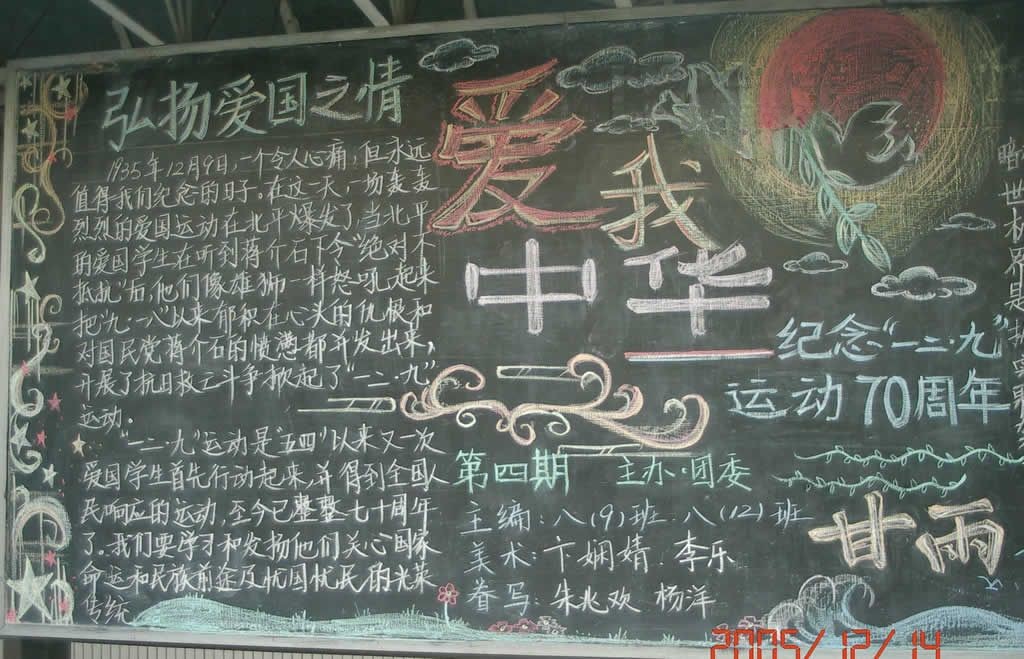 弘扬爱国之情
1935年12月9日,一个令人心痛,但永远
值得我们纪念的日子。在这一天,一场轰轰
烈烈的爱国运动在北平爆发了。当北平
的爱国学生在听到蒋介石下令"绝对不
抵抗"后,他们像雄狮一样怒吼起来
把"九·一八"以来郁积在心头的仇恨和
对国民党蒋介石的愤懑都并发出来,
开展了抗日救亡斗争掀起了"一二·九"
运动.
"一二·九"运动是"五四"以来又一次
爱国学生首先行动起来,并得到全国人
民响应的运动,至今已整整七十周年
了。我们要学习和发扬他们关心国家
命运和民族前途及忧国忧民的光荣
传统
爱我
中华
纪念"一二·九"
运动70周年
第四期 主办·团委
主编:八(9)班.八(12)班
美术:卞娴婧.李乐
眷写:朱兆欢 杨洋
甘雨
2005/12/14